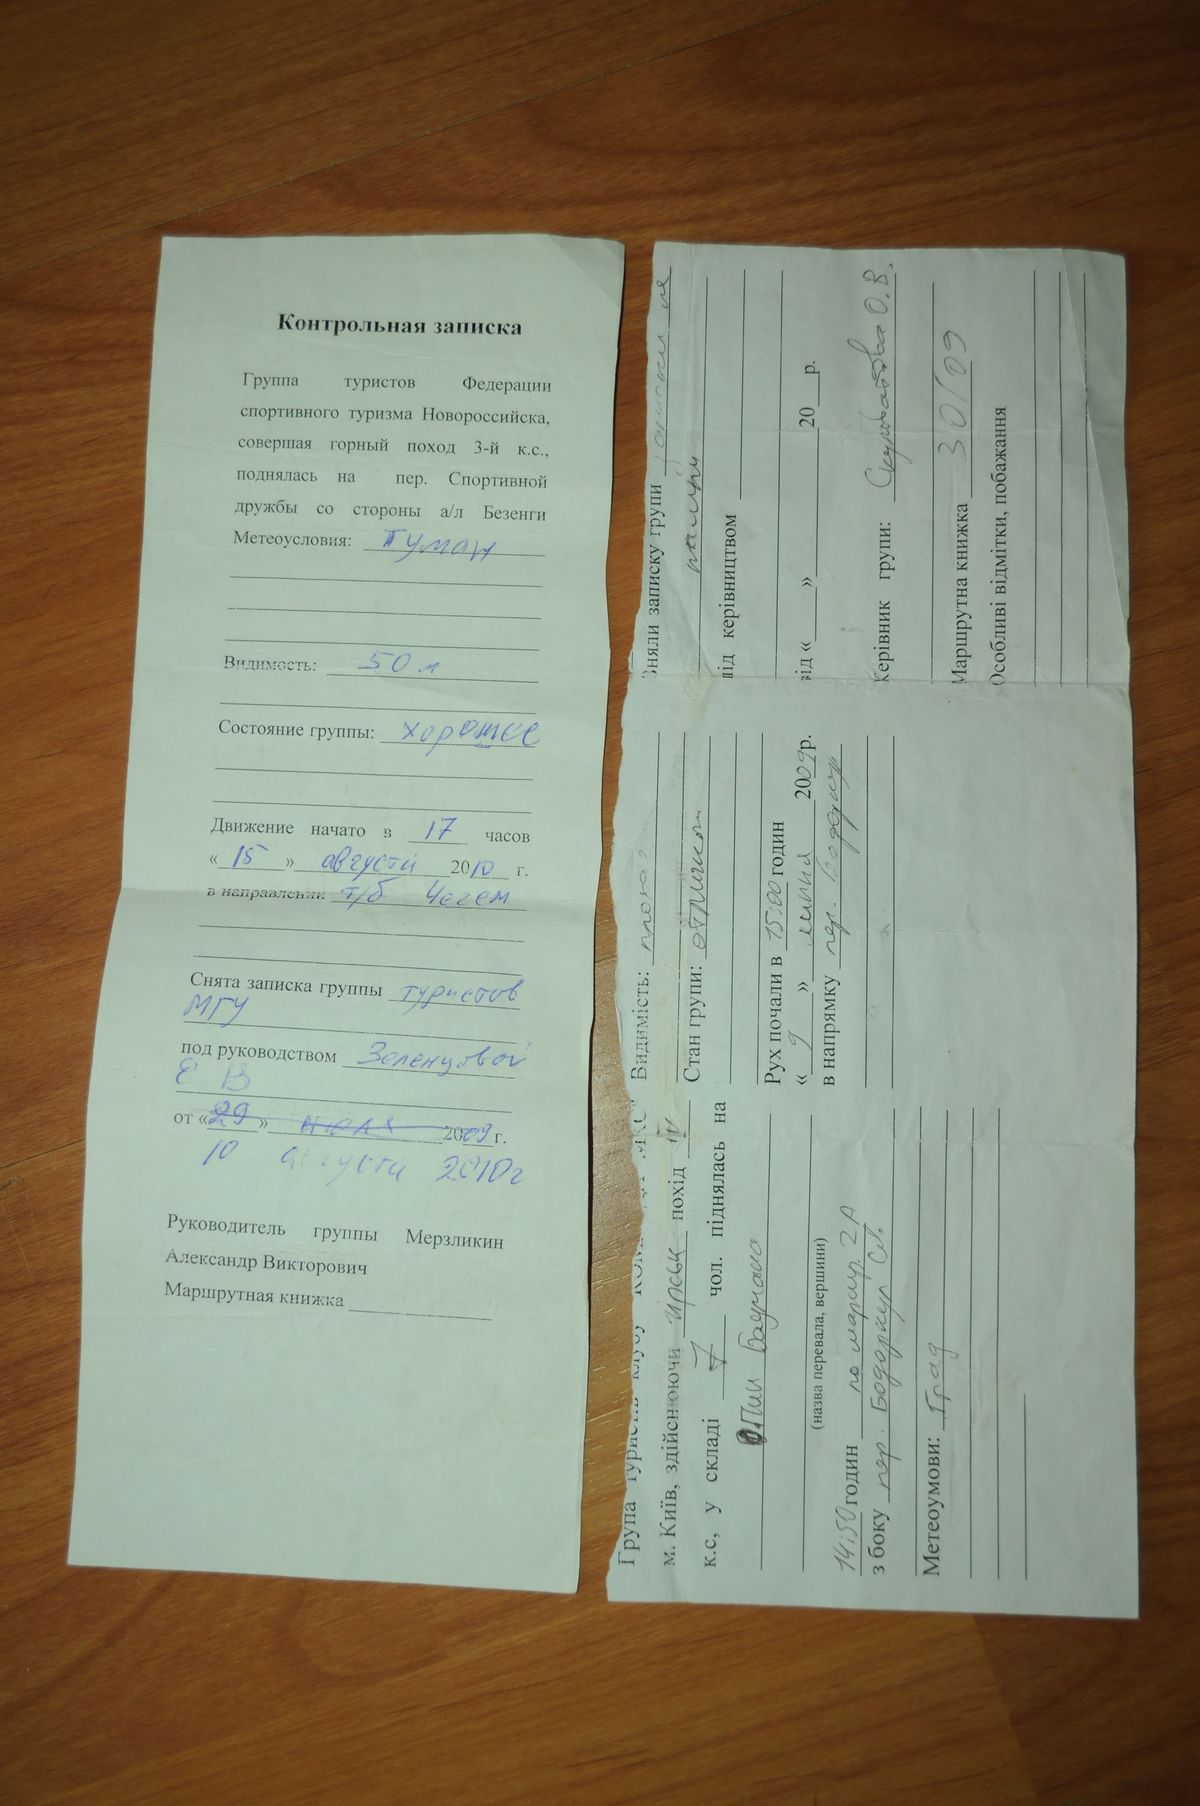 Контрольная записка
Группа туристов Федерации
спортивного туризма Новороссийска,
совершая горный поход 3-й к.с.,
поднялась на пер. Спортивной
дружбы со стороны а/л Безенги
Метеоусловия: туман
Видимость: 50 м
Состояние группы: хорошее
Движение начато в 17 часов
«15» августа 2010 г.
в направлении т/б Чегем
Снята записка группы туристов
МГУ
под руководством Зеленцовой
Е В
от «29» июля 2009 г.
10 августа 2010г
Руководитель группы Мерзликин
Александр Викторович
Маршрутная книжка
Група туристів клубу
м. Київ, здійснюючи гірськ похід IV
к.с, у складі 7 чол. піднялась на
Пик Баумана
(назва перевала, вершини)
14:50 годин по маршр. 2А
з боку пер. Бодоркуп Сев.
Метеоумови: Град
Видимість: плохая
Стан групи:
Рух почали в 15:00 годин
«9» липня 2009р.
в напрямку пер.
Зняли записку групи записки не
під керівництвом
від «___»___20__р.
Керівник групи: О.В.
Маршрутна книжка 30/09
Особливі відмітки, побажання